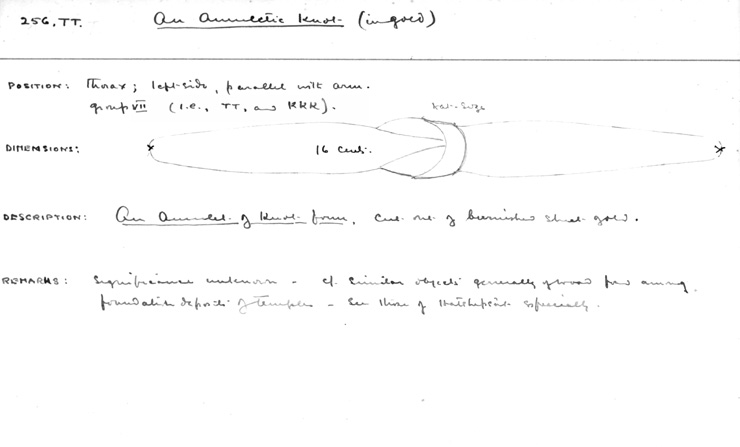 256, TT. An Amuletic Knot (in gold)
POSITION: Thorax; left-side, parallel with arm.
group VII (I.E., TT, and KKK).
DIMENSIONS: 16 cent.
DESCRIPTION: An Amulet of Knot form, cut out of burnished sheet gold.
REMARKS: Significance unknown - cf. similar objects generally of wood found among
foundation deposits of temples - See those of Hatshepsût especially.